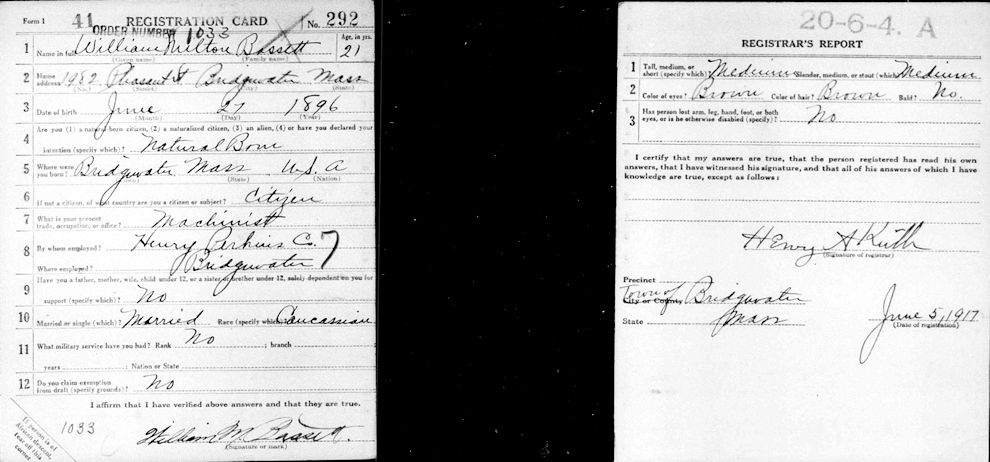 Form 1 41 REGISTRATION CARD No. 292
ORDER NUMBER 1033
1 Name in full William Milton Bassett Age, in yrs. 21
(Given name) (Family name)
2 Home address 1982 Pleasant St Bridgwater Mass
(No.) (Street) (City) (State)
3 Date of birth June 27 1896
(Month) (Day) (Year)
4 Are you (1) a natural-born citizen, (2) a naturalized citizen, (3) an alien, (4) or have you declared your
intention (specify which)? Natural Born
5 Where were you born? Bridgwater Mass U.S.A
(State) (Nation)
6 If not a citizen, of what country are you a citizen or subject? Citizen
7 What is your present trade, occupation, or office? Machinist
8 By whom employed? Henry Perkins C. 7
Where employed? Bridgwater
9 Have you a father, mother, wife, child under 12, or a sister or brother under 12, solely dependent on you for
support (specify which)? No
10 Married or single (which)? Married Race (specify which)? Caucassian
11 What military service have you had? Rank No ; branch
years ; Nation or State
12 Do you claim exemption from draft (specify grounds)? No
I affirm that I have verified above answers and that they are true.
1033 William M. Bassett.
(Signature or mark)
If person is of
African descent,
tear off this
corner
20-6-4. A
REGISTRAR'S REPORT
1 Tall, medium, or short (specify which)? Medium Slender, medium, or stout (which)? Medium
2 Color of eyes? Brown Color of hair? Brown Bald? No.
3 Has person lost arm, leg, hand, foot, or both
eyes, or is he otherwise disabled (specify)? No
I certify that my answers are true, that the person registered has read his own
answers, that I have witnessed his signature, and that all of his answers of which I have
knowledge are true, except as follows:
Henry A Keith
(Signature of registrar)
Precinct
Town of
City or County Bridgwater
State Mass June 5, 1917
(Date of registration)